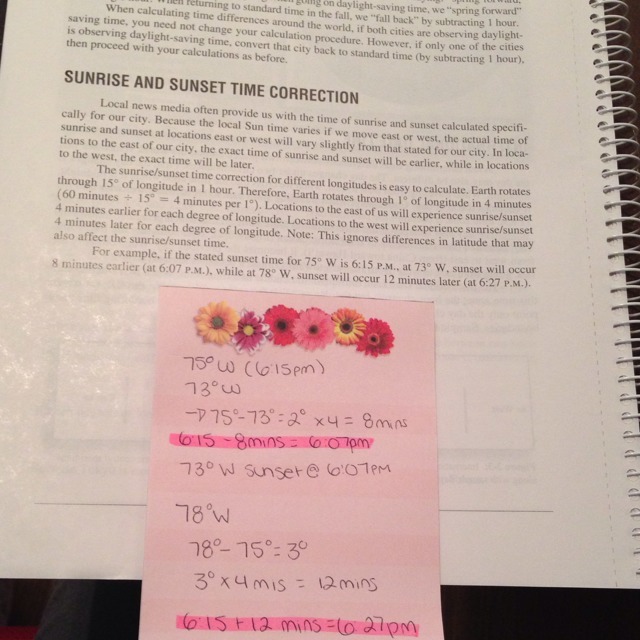 going on daylight-saving time, we "spring forward"
When returning to standard time in the fall, we "fall back" by subtracting 1 hour.
When calculating time differences around the world, if both cities are observing daylight-
saving time, you need not change your calculation procedure. However, if only one of the cities
is observing daylight-saving time, convert that city back to standard time (by subtracting 1 hour),
then proceed with your calculations as before.
SUNRISE AND SUNSET TIME CORRECTION
Local news media often provide us with the time of sunrise and sunset calculated specifi-
cally for our city. Because the local Sun time varies if we move east or west, the actual time of
sunrise and sunset at locations east or west will vary slightly from that stated for our city. In loca-
tions to the east of our city, the exact time of sunrise and sunset will be earlier, while in locations
to the west, the exact time will be later.
The sunrise/sunset time correction for different longitudes is easy to calculate. Earth rotates
through 15° of longitude in 1 hour. Therefore, Earth rotates through 1° of longitude in 4 minutes
(60 minutes ÷ 15° = 4 minutes per 1°). Locations to the east of us will experience sunrise/sunset
4 minutes earlier for each degree of longitude. Locations to the west will experience sunrise/sunset
4 minutes later for each degree of longitude. Note: This ignores differences in latitude that may
also affect the sunrise/sunset time.
For example, if the stated sunset time for 75° W is 6:15 P.M., at 73° W, sunset will occur
8 minutes earlier (at 6:07 P.M.), while at 78° W, sunset will occur 12 minutes later (at 6:27 P.M.).
75°W (6:15pm)
73°W
→75°-73°=2° x4 = 8mins
6:15 -8mins = 6:07pm
73° W sunset @ 6:07PM
78°W
78°- 75°=3°
3° x 4 mis = 12mins
6:15 + 12 mins = 6:27pm